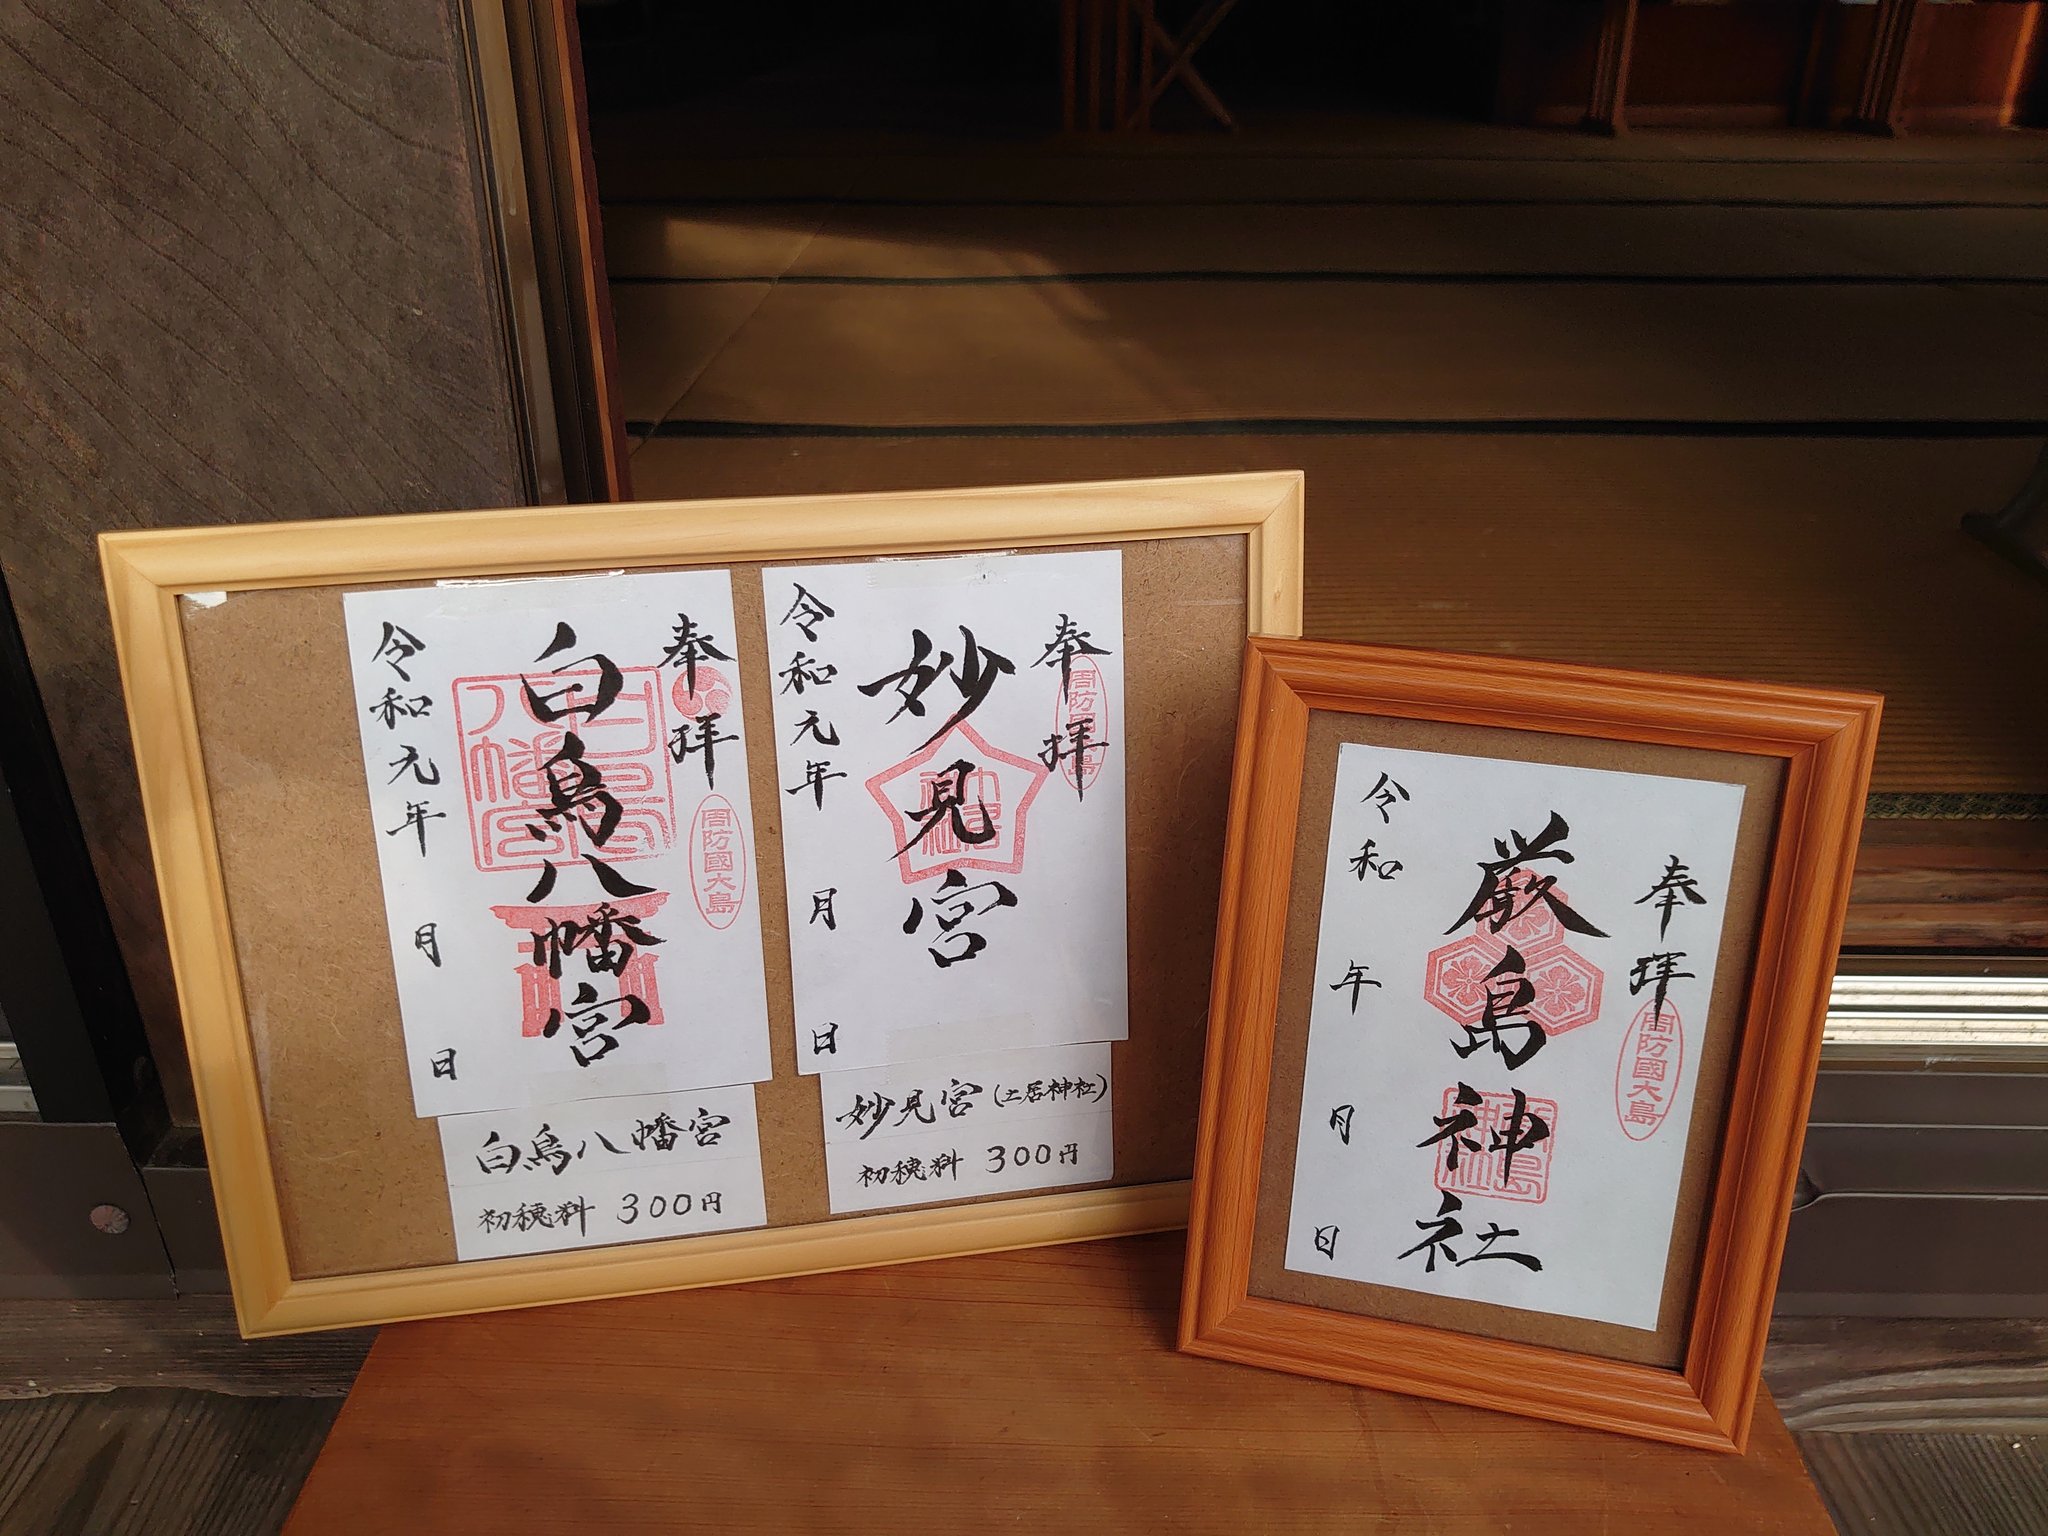 奉拝
白鳥八幡宮
令和元年 月 日
周防國大島
白鳥八幡宮
初穂料 300円
奉拝
妙見宮
令和元年 月 日
周防国大島
妙見宮(土居神社)
初穂料 300円
奉拝
厳島神社
令和 年 月 日
周防國大島